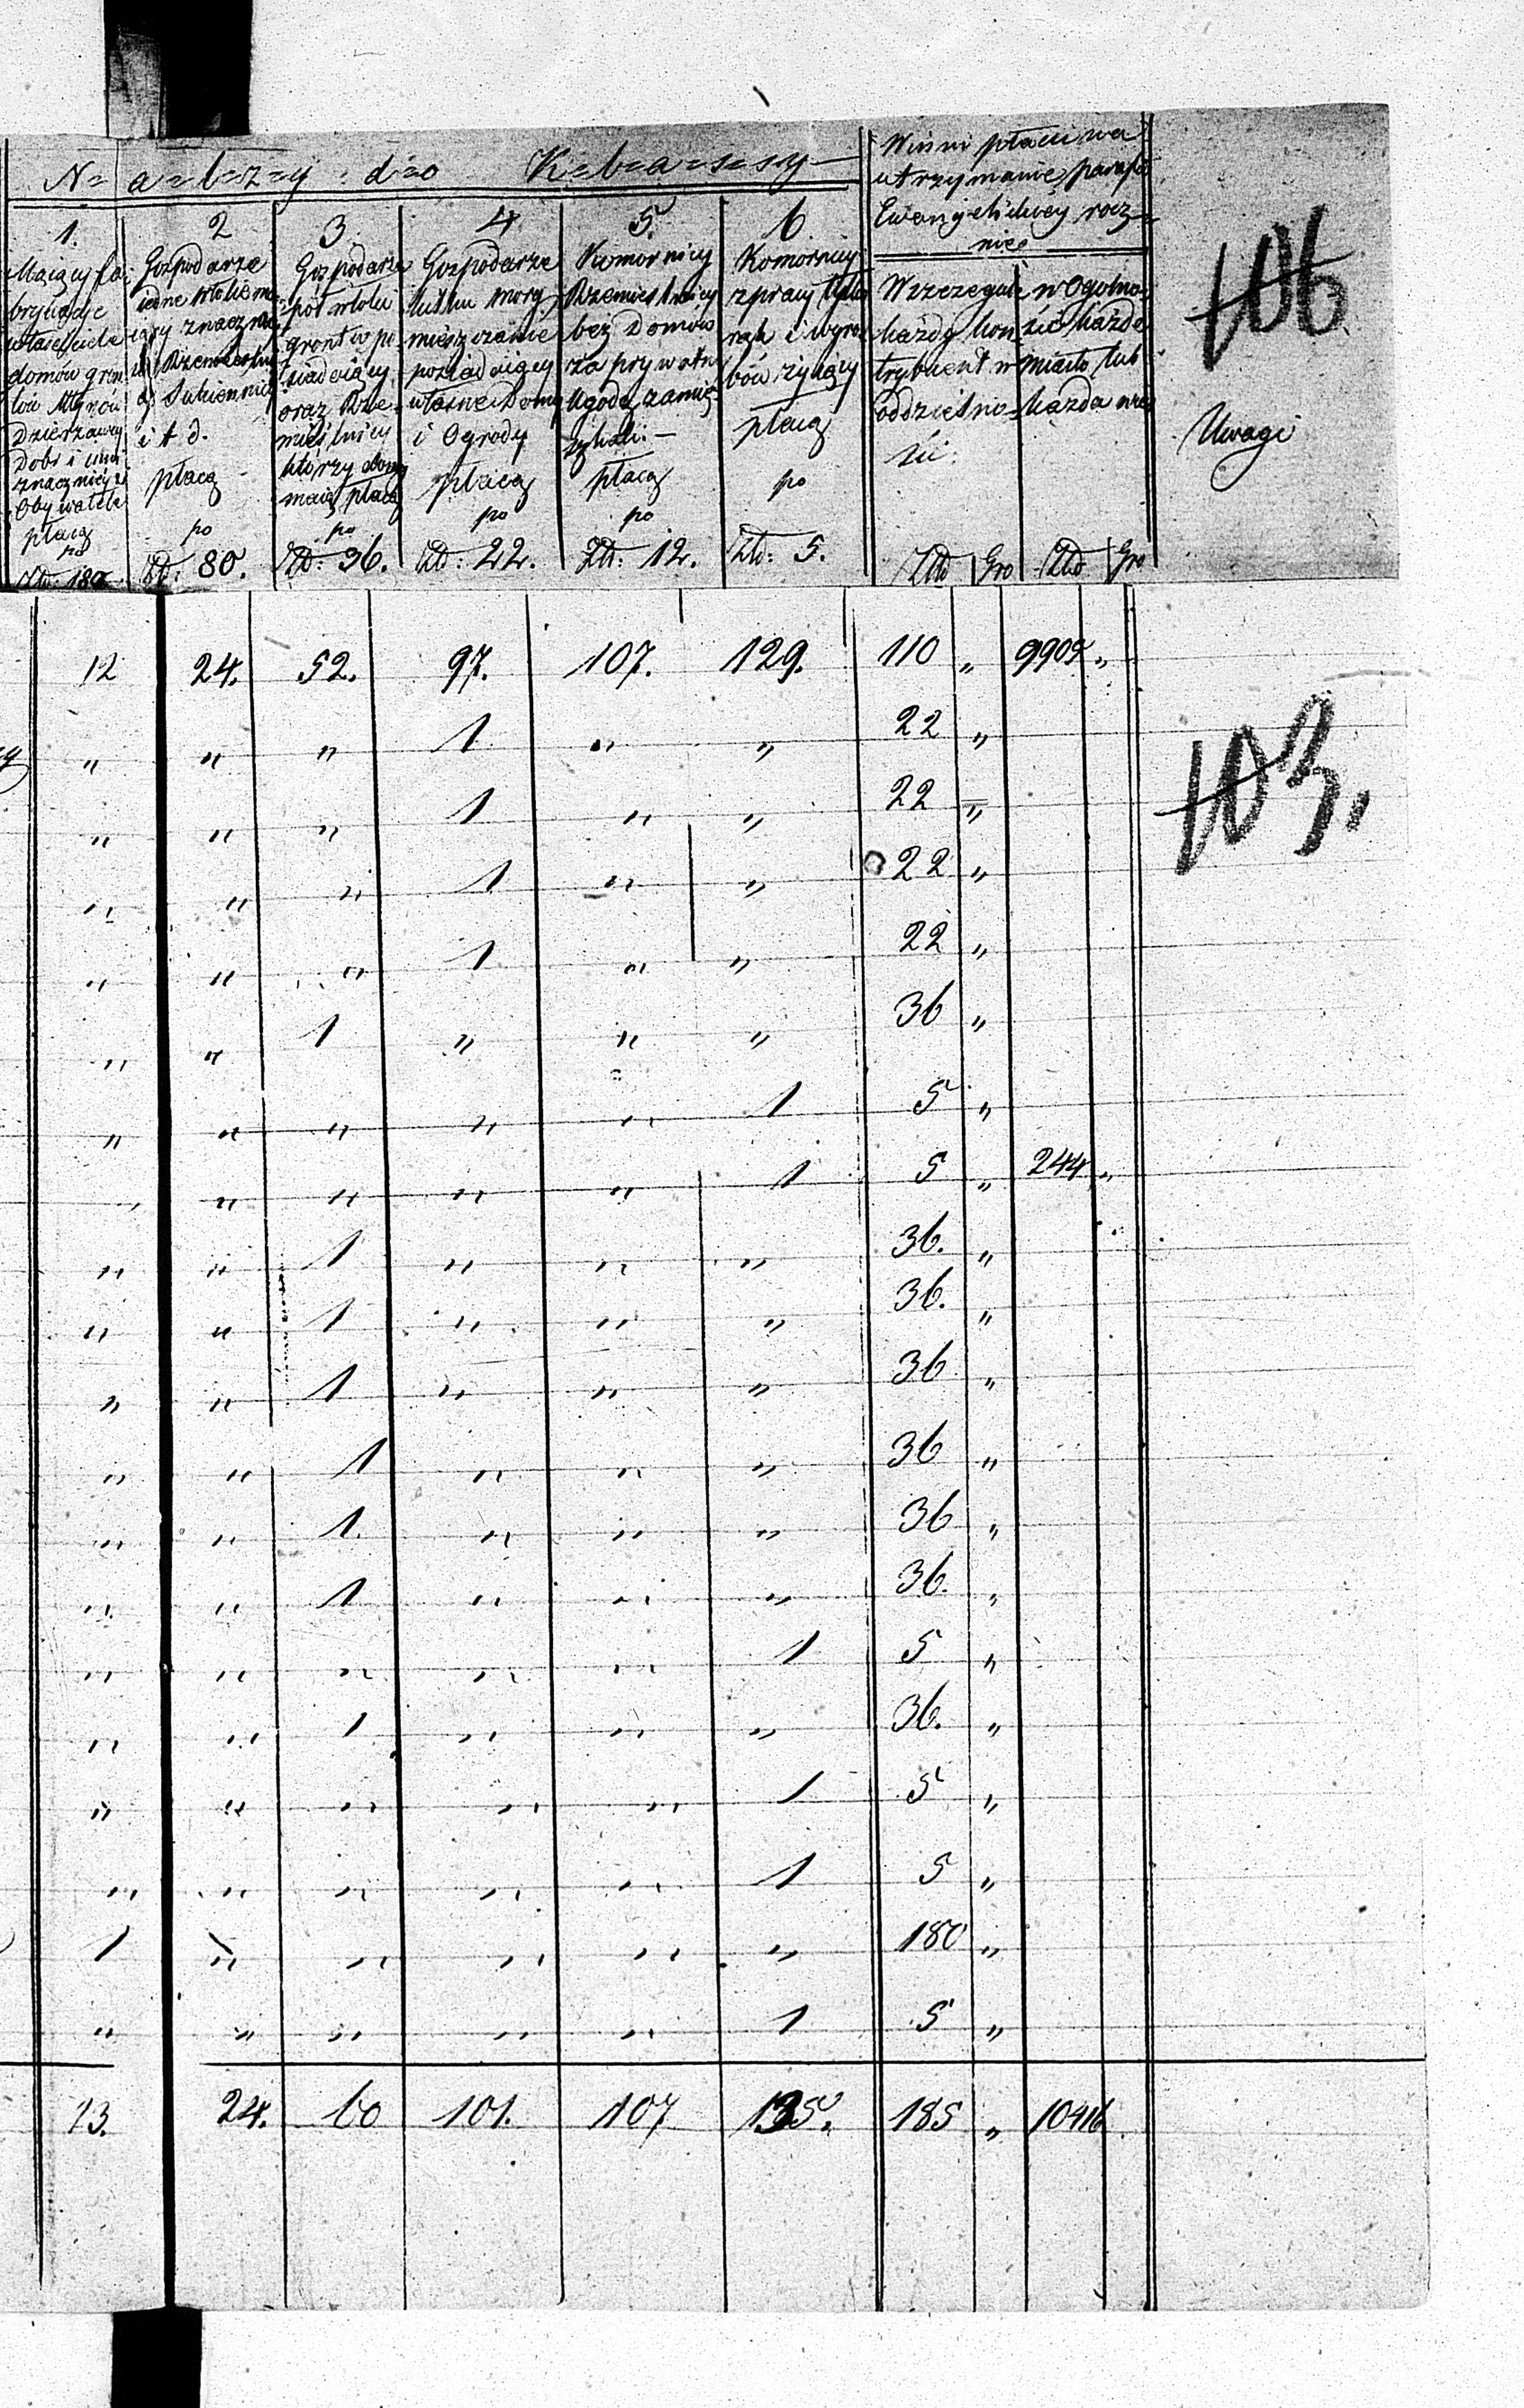 Należy do Klassy
Winni płacić na
utrzymanie parafii
Ewangelickiey rocz-
nie
1. 2 3. 4. 5. 6
Maiący fa-
brykacye
właściciele
domów grun
tów Młynów
Dzierzawcy
Dobr i inni
znacznieysi
Obywatele
płacą
po
Złt: 180.
Gospodarze
iedne włokę ma-
iący znaczniey
si Rzemieślni
cy Sukiennicy
i t d.
płacą
po
Złt: 80.
Gospodarze
pół włoki
gruntu po
siadaiący
oraz Rze-
mieślnicy
którzy domy
maią płacą
po
Złt: 36.
Gospodarze
kilku morg
mieszczanie
posiadaiący
własne Domy
i Ogrody
płacą
po
Złt: 22.
Komornicy
Rzemieślnicy
bez Domów
za prywatną
Ugodą zamie-
szkali. –
płacą
po
Złt: 12.
Komornicy
z pracy tylko
rąk i wyro-
bów żyiący
płacą
po
Złt: 5.
W szczegule
każdy kon
trybuent w
oddzielno-
ści.
Złt Gro
w Ogólno-
ści każde
miasto lub
każda wieś
Złt Gro
106
Uwagi
12 24. 52. 97. 107. 129. 110 " 9905 "
" " " 1 " " 22 "
103.
" " " 1 " " 22 "
" " " 1 " " 22 "
" " " 1 " " 22 "
" " 1 " " " 36 "
" " " " " 1 5 "
" " " " " 1 5 " 244 "
" " 1 " " " 36. "
" " 1 " " " 36. "
" " 1 " " " 36 "
" " 1 " " " 36 "
" " 1. " " " 36 "
" " 1 " " " 36. "
" " " " " 1 5 "
" " 1 " " " 36. "
" " " " " 1 5 "
" " " " " 1 5 "
1 " " " " " 180 "
" " " " " 1 5 "
13. 24. 60 101. 107 135. 185 " 10416